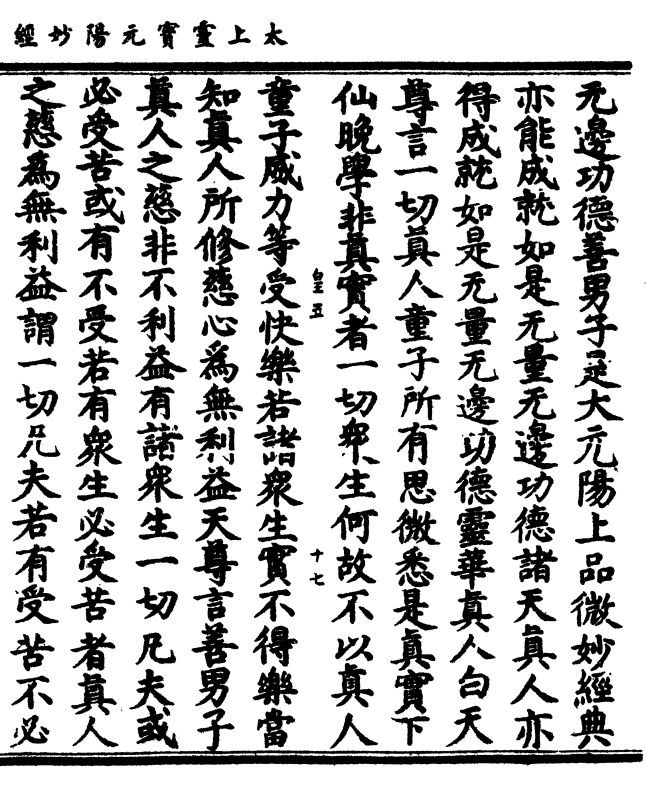 太上靈寶元陽妙經
无邊功德善男子是大元陽上品微妙經典
亦能成就如是无量无邊功德諸天真人亦
得成就如是无量无邊功德靈華真人白天
尊言一切真人童子所有思微悉是真實下
仙晚學非真實者一切眾生何故不以真人
皇五
十七
童子威力等受快樂若諸眾生實不得樂當
知真人所修慈心為無利益天尊言善男子
真人之慈非不利益有諸眾生一切凡夫或
必受苦或有不受若有眾生必受苦者真人
之慈為無利益謂一切凡夫若有受苦不必